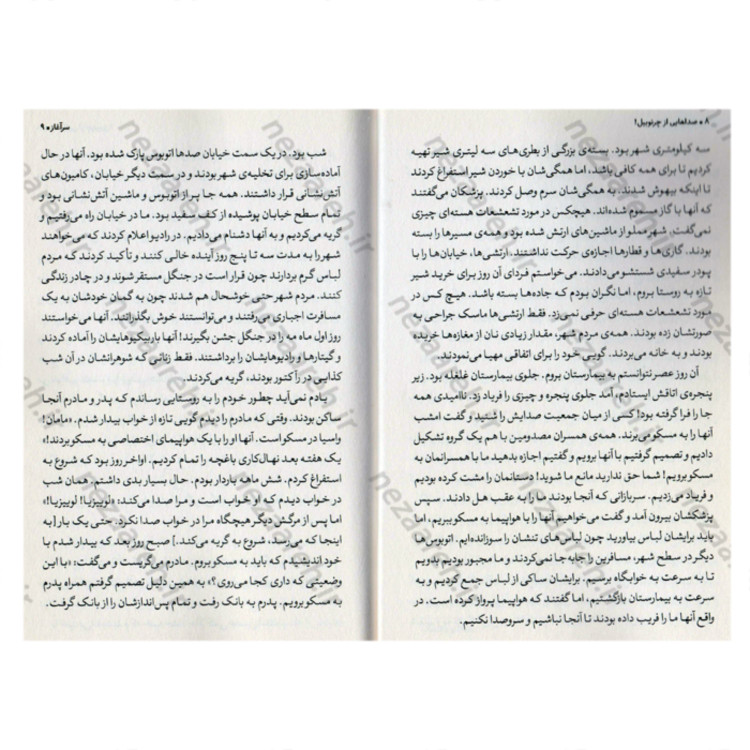 ۸ ● صداهایی از چرنوبیل!
سه کیلومتری شهر بود. بسته‌ی بزرگی از بطری‌های سه لیتری شیر تهیه
کردیم تا برای همه کافی باشد، اما همگی‌شان با خوردن شیر استفراغ کردند
تا اینکه بیهوش شدند. به همگی‌شان سرم وصل کردند. پزشکان می‌گفتند
که آنها با گاز مسموم شده‌اند. هیچکس در مورد تشعشعات هسته‌ای چیزی
نمی‌گفت، شهر مملو از ماشین‌های ارتش شده بود و همه‌ی مسیرها را بسته
بودند. گاری‌ها و قطارها اجازه‌ی حرکت نداشتند. ارتشی‌ها، خیابان‌ها را با
پودر سفیدی شستشو می‌دادند. می‌خواستم فردای آن روز برای خرید شیر
تازه به روستا بروم، اما نگران بودم که جاده‌ها بسته باشد. هیچ کس در
مورد تشعشعات هسته‌ای حرفی نمی‌زد. فقط ارتشی‌ها ماسک جراحی به
صورتشان زده بودند. همه‌ی مردم شهر، مقدار زیادی نان از مغازه‌ها خریده
بودند و به خانه می‌بردند. گویی خود را برای اتفاقی مهیا می‌نمودند.
آن روز عصر نتوانستم به بیمارستان بروم. جلوی بیمارستان غلغله بود. زیر
پنجره‌ی اتاقش ایستادم، آمد جلوی پنجره و چیزی را فریاد زد. ناامیدی همه
جا را فرا گرفته بود! کسی از میان جمعیت صدایش را شنید و گفت امشب
آنها را به مسکو می‌برند. همه‌ی همسران مصدومین با هم یک گروه تشکیل
دادیم و تصمیم گرفتیم با آنها برویم و گفتیم اجازه بدهید ما با همسرانمان به
مسکو برویم! شما حق ندارید مانع ما شوید! دستانمان را مشت کرده بودیم
و فریاد می‌زدیم. سربازانی که آنجا بودند ما را به عقب هل دادند. سپس
پزشکشان بیرون آمد و گفت می‌خواهیم آنها را با هواپیما به مسکو ببریم، اما
باید برایشان لباس بیاورید چون لباس‌های تنشان را سوزانده‌ایم. اتوبوس‌ها
دیگر در سطح شهر، مسافرین را جابه جا نمی‌کردند و ما مجبور بودیم بدویم
تا به سرعت به خوابگاه برسیم. برایشان ساکی از لباس جمع کردیم و به
سرعت به بیمارستان بازگشتیم، اما گفتند که هواپیما پرواز کرده است. در
واقع آنها ما را فریب داده بودند تا آنجا نباشیم و سروصدا نکنیم.
سرآغاز ● ۹
شب بود. در یک سمت خیابان صدها اتوبوس پارک شده بود. آنها در حال
آماده‌سازی برای تخلیه‌ی شهر بودند و در سمت دیگر خیابان، کامیون‌های
آتش نشانی قرار داشتند. همه جا پر از اتوبوس و ماشین آتش‌نشانی بود و
تمام سطح خیابان پوشیده از کف سفید بود. ما در خیابان راه می‌رفتیم و
گریه می‌کردیم و به آنها دشنام می‌دادیم. در رادیو اعلام کردند که می‌خواهند
شهر را به مدت سه تا پنج روز آینده خالی کنند و تأکید کردند که مردم
لباس گرم بردارند چون قرار است در جنگل مستقر شوند و در چادر زندگی
کنند. مردم شهر حتی خوشحال هم شدند چون به گمان خودشان به یک
مسافرت اجباری می‌رفتند و می‌توانستند خوش بگذرانند. آنها می‌خواستند
روز اول ماه مه را در جنگل جشن بگیرند! آنها باربیکیوهایشان را آماده کردند
و گیتارها و رادیوهایشان را برداشتند. فقط زنانی که شوهرانشان در آن شب
کذایی در رآکتور بودند، گریه می‌کردند.
یادم نمی‌آید چطور خودم را به روستایی رساندم که پدر و مادرم آنجا
ساکن بودند. وقتی که مادرم را دیدم گویی تازه از خواب بیدار شدم. «مامان!
واسیا در مسکو است. آنها او را با یک هواپیمای اختصاصی به مسکو بردند!»
یک هفته بعد نهال‌کاری باغچه را تمام کردیم. اواخر روز بود که شروع به
استفراغ کردم. شش ماهه باردار بودم. حال بسیار بدی داشتم. همان شب
در خواب دیدم که او خواب است و مرا صدا می‌کند: «لوییزیا! لوییزیا!»
اما پس از مرگش دیگر هیچگاه مرا در خواب صدا نکرد. حتی یک بار [به
اینجا که می‌رسد، شروع به گریه می‌کند.] صبح روز بعد که بیدار شدم با
خود اندیشیدم که باید به مسکو بروم. مادرم می‌گریست و می‌گفت: «با این
وضعیتی که داری کجا می‌روی؟» به همین دلیل تصمیم گرفتم همراه پدرم
به مسکو برویم. پدرم به بانک رفت و تمام پس‌اندازشان را از بانک گرفت.
nezareh.ir